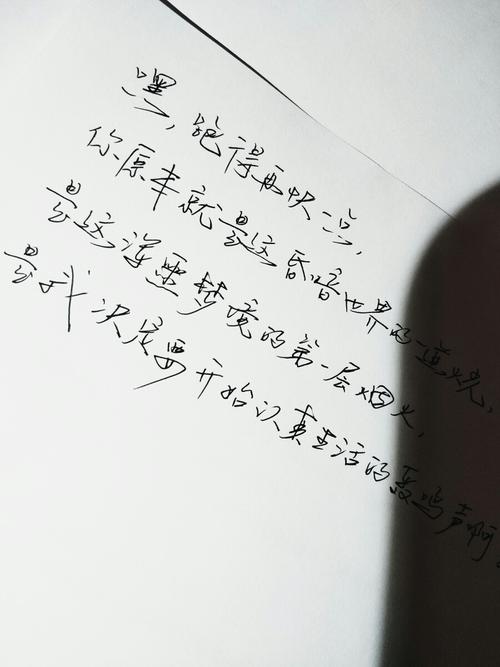 嘿，跑得再快一点，
你原本就是这昏暗世界的一道光，
是这深恶梦境的第一层烟火，
是我决定要开始认真生活的轰鸣声啊。